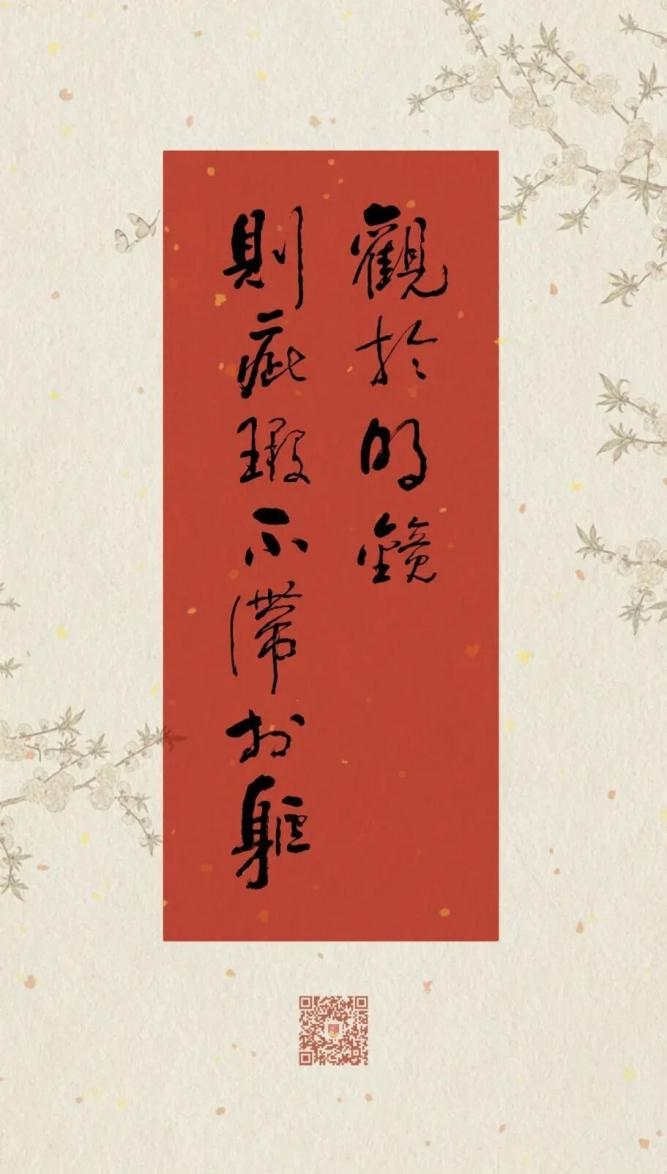 觀於明鏡
則疵瑕不滯於軀